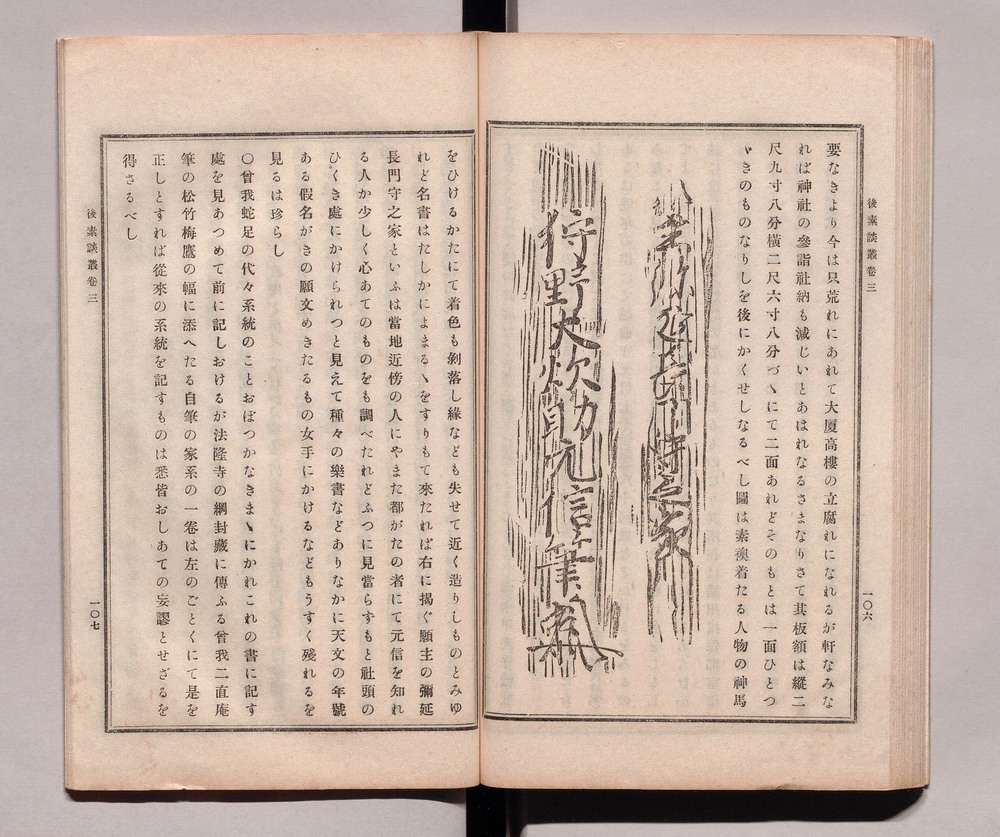 後素談叢卷三
一〇六
要なきより今は只荒れにあれて大厦高樓の立腐れになれるが軒なみな
れば神社の參詣社納も減じいとあはれなるさまなりさて其板額は縱二
尺九寸八分橫二尺六寸八分づゝにて二面あれどそのもとは一面ひとつ
ゞきのものなりしを後にかくせしなるべし圖は素襖着たる人物の神馬
長門守之家
狩野大炊助元信筆
をひけるかたにて着色も剝落し緣なども失せて近く造りしものとみゆ
れど名書はたしかによまるゝをすりもて來たれば右に揭ぐ願主の彌延
長門守之家といふは當地近傍の人にやまた都がたの者にて元信を知れ
る人か少しく心あてのものをも調べたれどふつに見當らずもと社頭の
ひくき處にかけられつと見えて種々の樂書などありなかに天文の年號
ある假名がきの願文めきたるもの女手にかけるなどもうすく殘れるを
見るは珍らし
〇曾我蛇足の代々系統のことおぼつかなきまゝにかれこれの書に記す
處を見あつめて前に記しおけるが法隆寺の綱封藏に傳ふる曾我二直庵
筆の松竹梅鷹の幅に添へたる自筆の家系の一卷は左のごとくにて是を
正しとすれば從來の系統を記すものは悉皆おしあての妄謬とせざるを
得さるべし
後素談叢卷三
一〇七